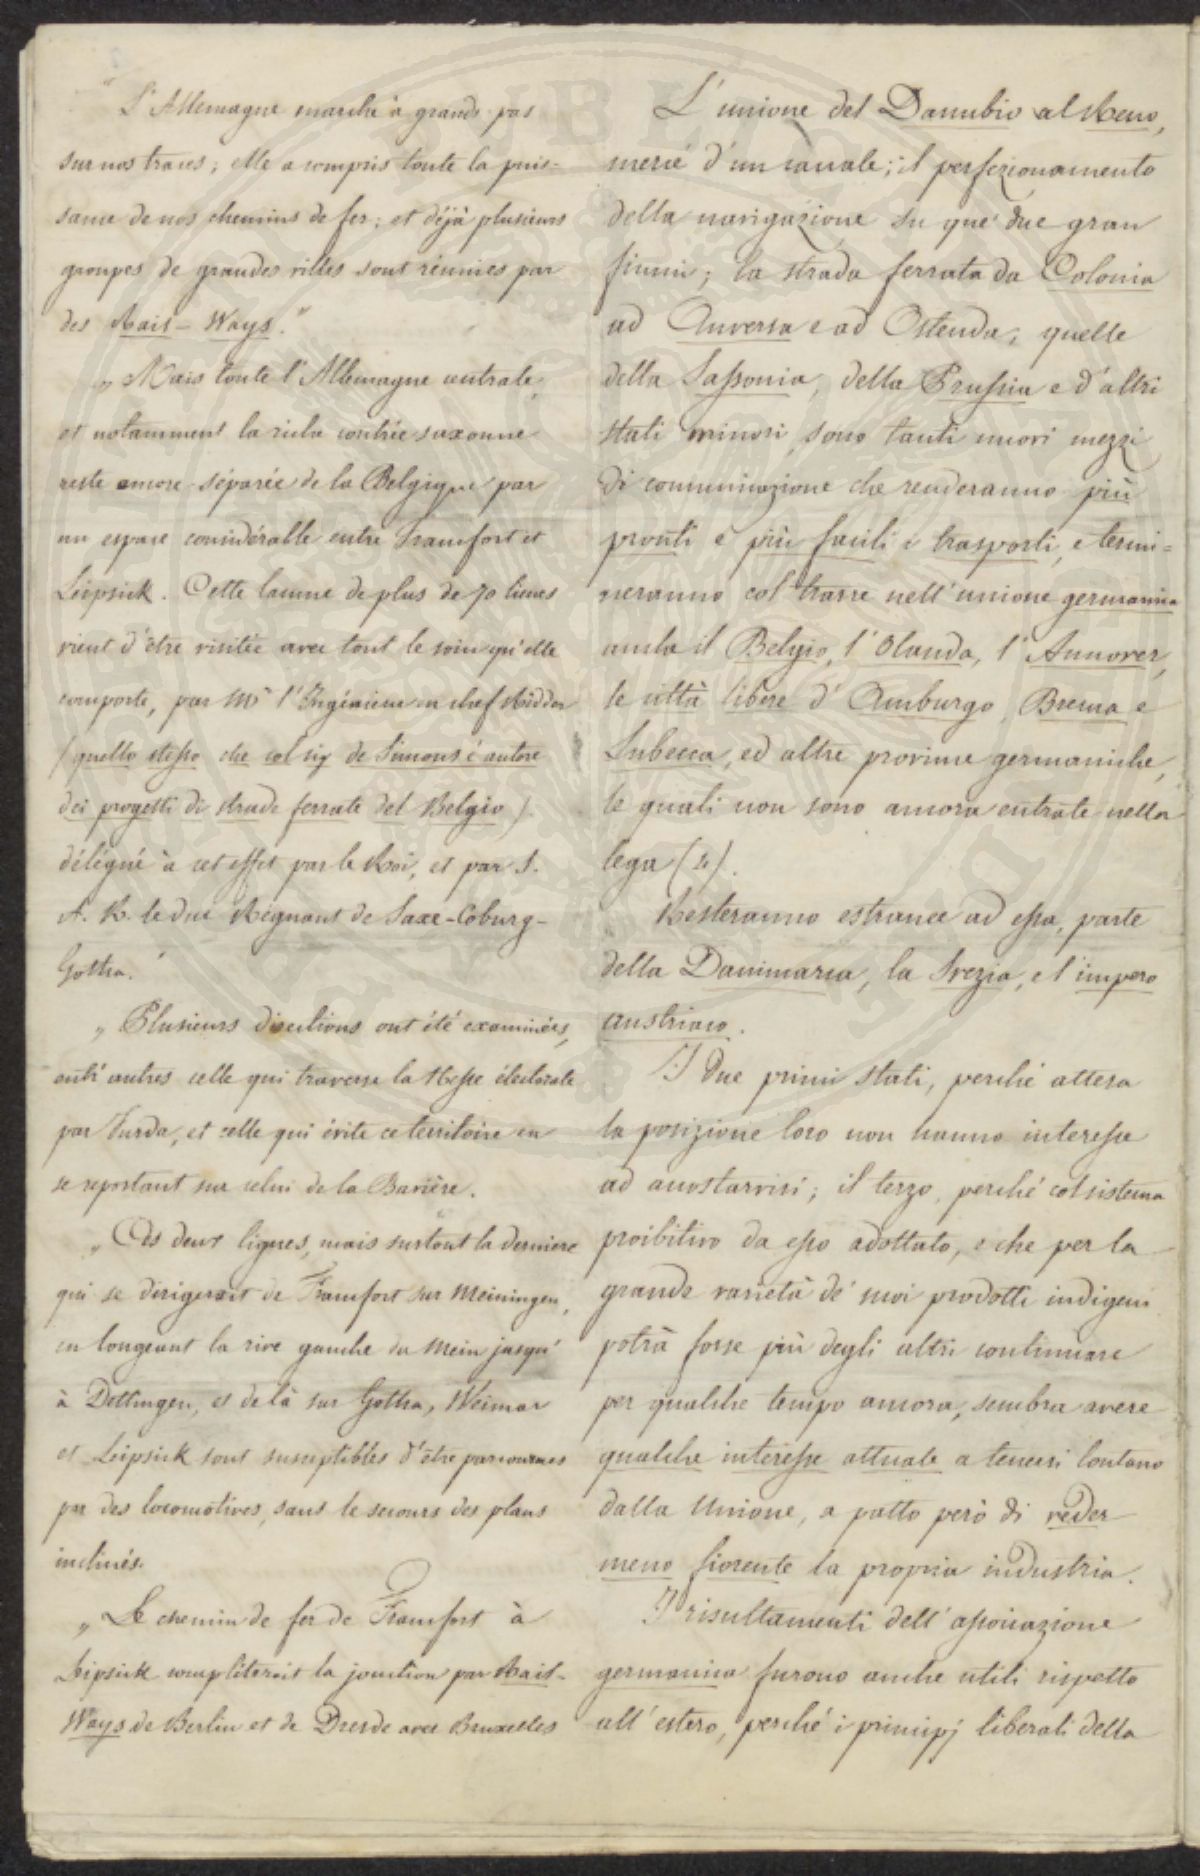 "L'Allemagne marche à grands pas
sur nos traces; elle a compris toute la puis-
sance de nos chemins de fer; et déjà plusieurs
groupes de grandes villes sont réunies par
des Rail-Ways."
„ Mais toute l'Allemagne centrale,
et notamment la riche contrée saxonne
reste encore séparée de la Belgique par
un espace considérable entre Francfort et
Leipsick. Cette lacune de plus de 70 lieues
vient d'être visitée avec tout le soin qu'elle
comporte, par Mr l'Ingénieur en chef Ridder
(quello stesso che col sig de Simons é autore
dei progetti di strade ferrate del Belgio)
délégué à cet effet par le Roi, et par S.
A. R. le duc Régnant de Saxe-Coburg-
Gotha."
„ Plusieurs directions ont été examinées,
entr'autres celle qui traverse la Hesse électorale
par Furda, et celle qui évite ce territoire en
se reportant sur celui de la Bavière.
„ Ces deux lignes, mais surtout la derniere
qui se dirigerait de Francfort sur Meiningen,
en longeant la rive gauche du Mein jusqu'
à Dettingen, et de là sur Gotha, Weimar
et Leipsick sont susceptibles d'être parcourues
par des locomotives, sans le secours des plans
inclinés.
„ Le chemin de fer de Francfort à
Leipsick completerait la jonction par Rail-
Ways de Berlin et de Dresde avec Bruxelles
L'unione del Danubio al Reno,
mercé d'un canale; il perfezionamento
della navigazione su que' due gran
fiumi; la strada ferrata da Colonia
ad Anversa e ad Ostenda, quelle
della Sassonia, della Prussia e d'altri
stati minori, sono tanti nuovi mezzi
di comunicazione che renderanno più
pronti e più facili i trasporti, e termi=
neranno col trarre nell'unione germanica
anche il Belgio, l'Olanda, l'Annover,
le città libere d'Amburgo, Brema e
Lubecca, ed altre provincie germaniche,
le quali non sono ancora entrate nella
lega (4).
Resteranno estranee ad essa, parte
della Danimarca, la Svezia, e l'impero
austriaco.
I due primi stati, perché attesa
la posizione loro non hanno interesse
ad accostarvisi; il terzo, perché col sistema
proibitivo da esso adottato, e che per la
grande varietà de' suoi prodotti indigeni
potrà forse più degli altri continuare
per qualche tempo ancora, sembra avere
qualche interesse attuale a tenersi lontano
dalla Unione, a patto però di veder
meno fiorente la propria industria.
I risultamenti dell'associazione
germanica furono anche utili rispetto
all'estero, perché i principj liberali della